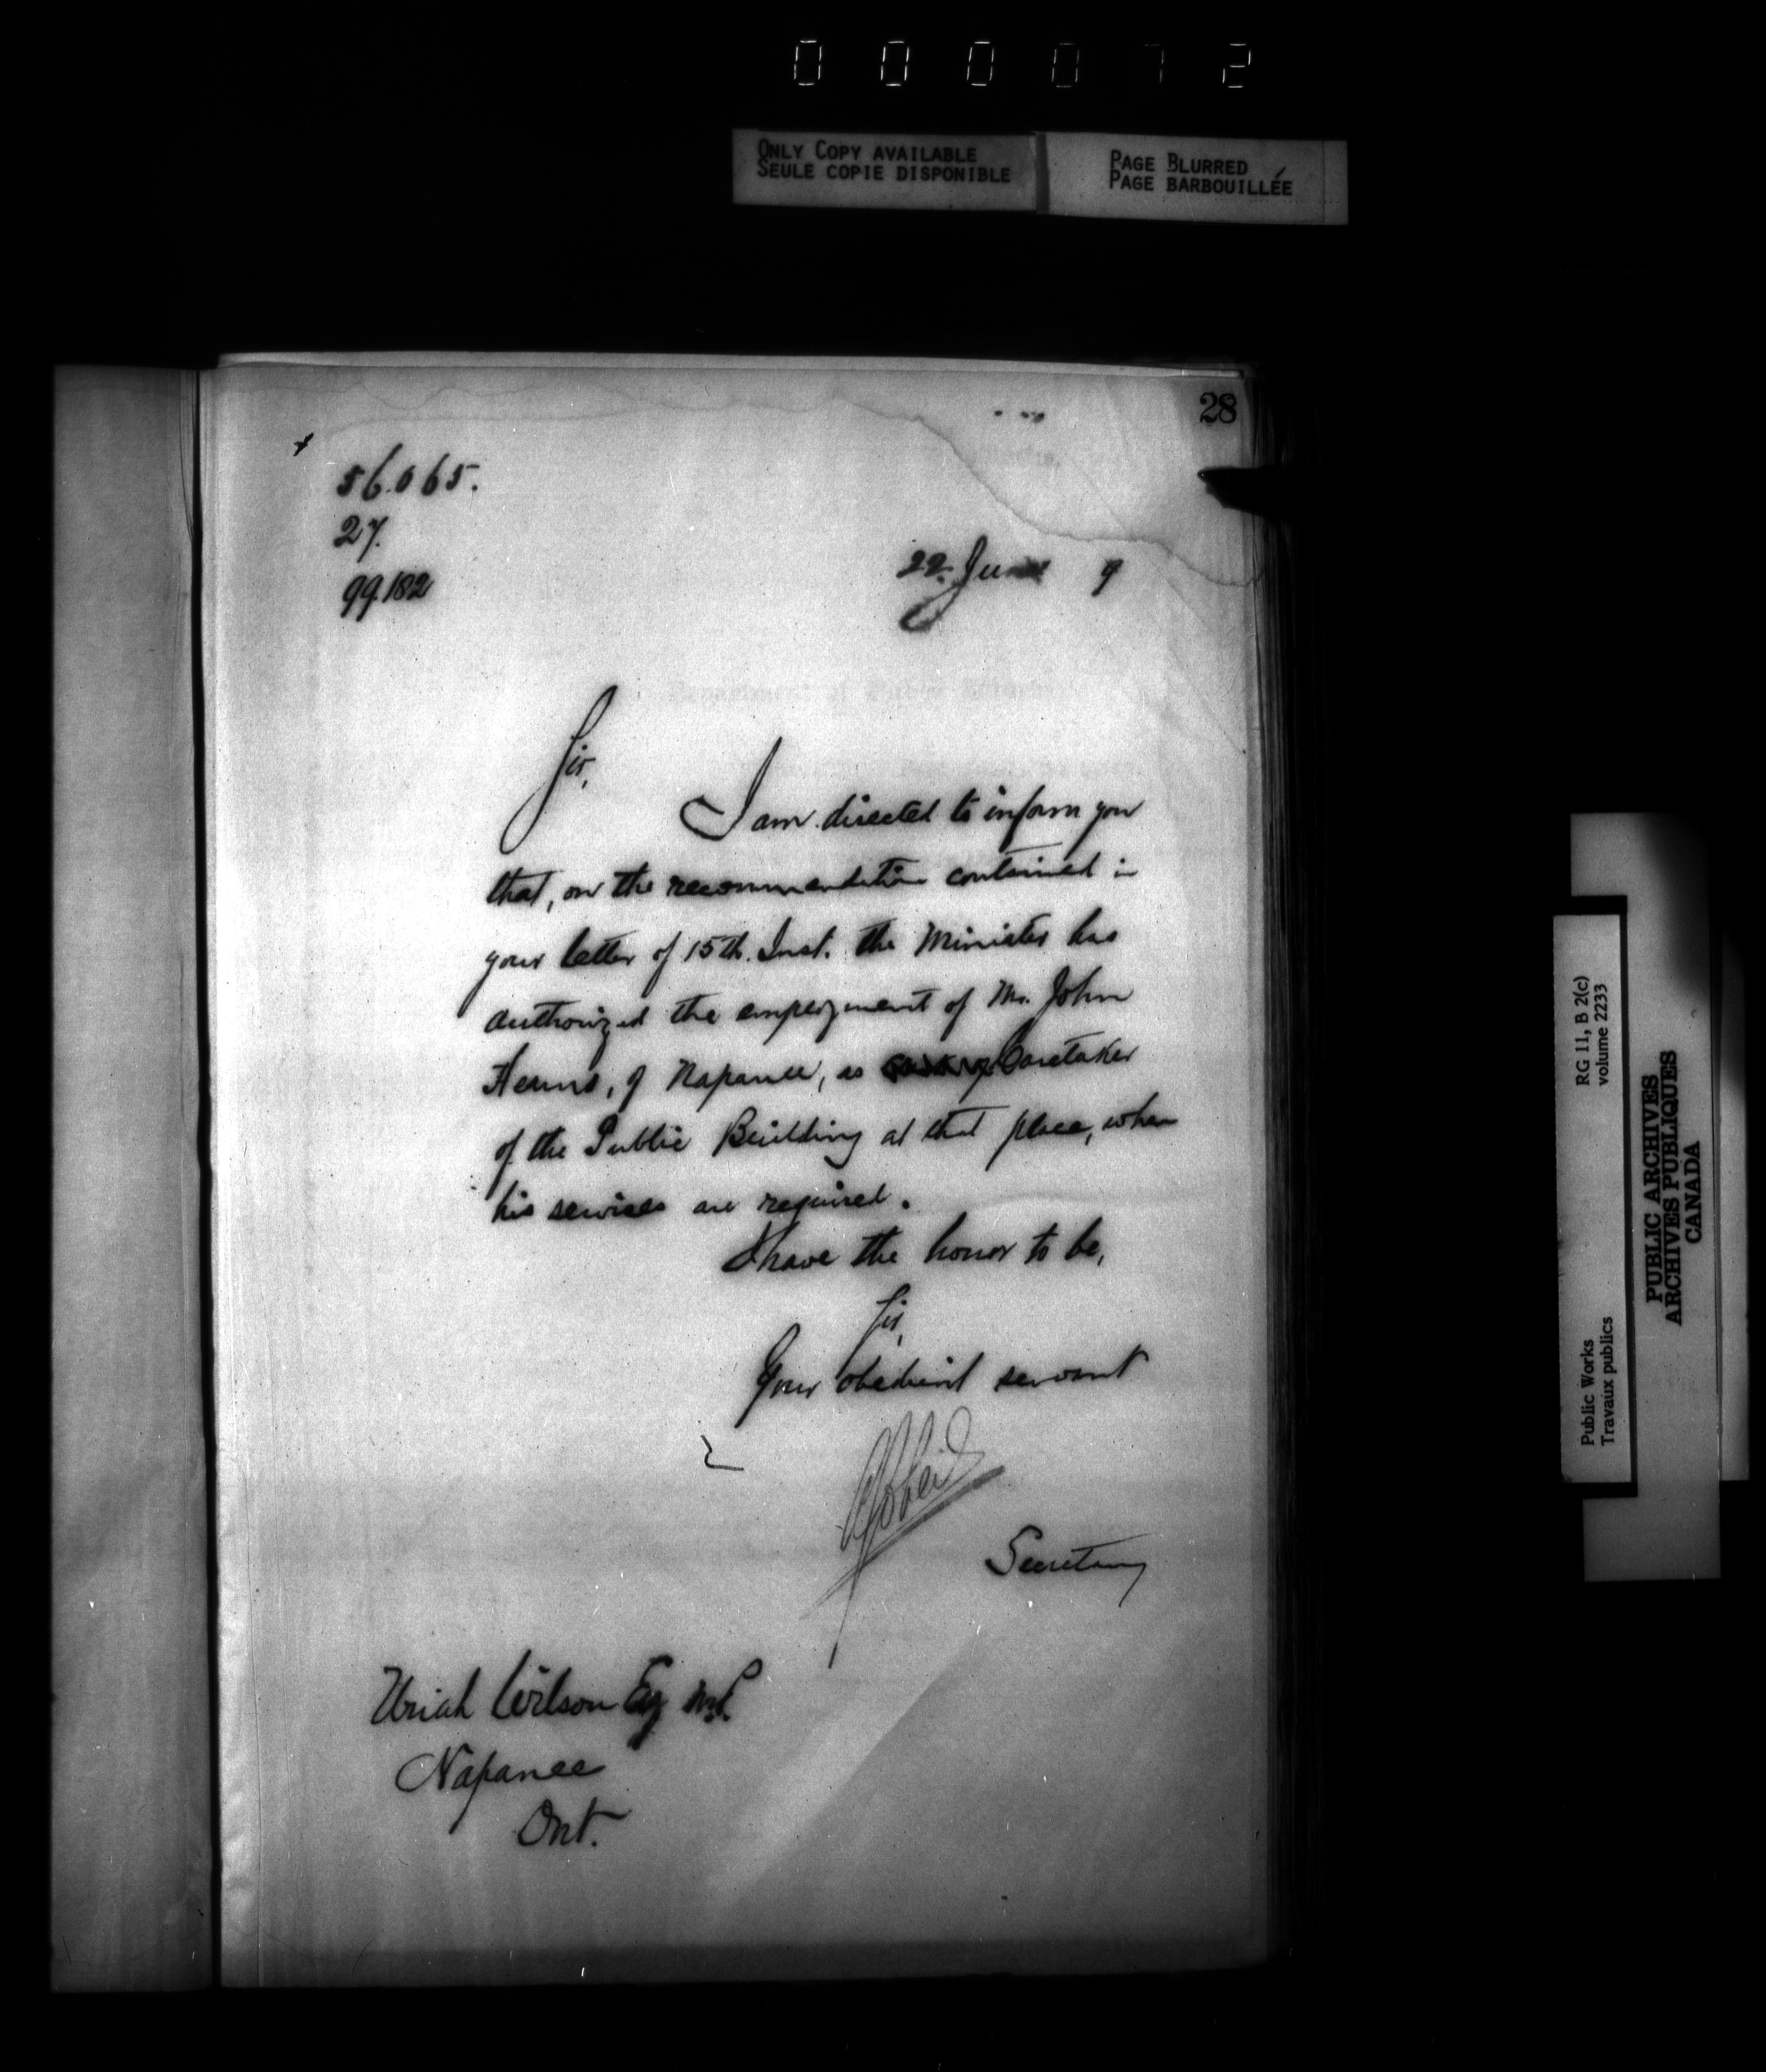 000072
ONLY COPY AVAILABLE
SEULE COPIE DISPONIBLE
PAGE BLURRED
PAGE BARBOUILLÉE
28
56.065.
27.
99.182
22 June 9
Sir,
I am directed to inform you
that, on the recommendation contained in
your letter of 15th. Inst. the Minister has
authorized the employment of Mr. John
of Napanee, as Caretaker
of the Public Building at that place, when
his services are required.
I have the honor to be,
Sir,
Your obedient servant
Secretary
Uriah Wilson Esq M.P.
Napanee
Ont.
RG 11, B 2(c)
volume 2233
Public Works
Travaux publics
PUBLIC ARCHIVES
ARCHIVES PUBLIQUES
CANADA